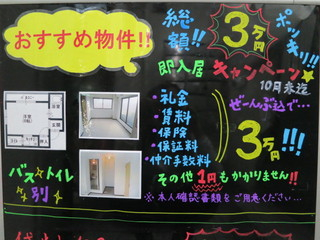 おすすめ物件!!
総額!!
3万円
ポッキリ!!
即入居
キャンペーン★
10月参迄
・礼金
・賃料
・保険
・保証料
・仲介手数料
ぜーんぶ込で…
3万円!!!
その他1円もかかりません!!
※本人確認書類をご用意ください…
洋室
バス・トイレ
別